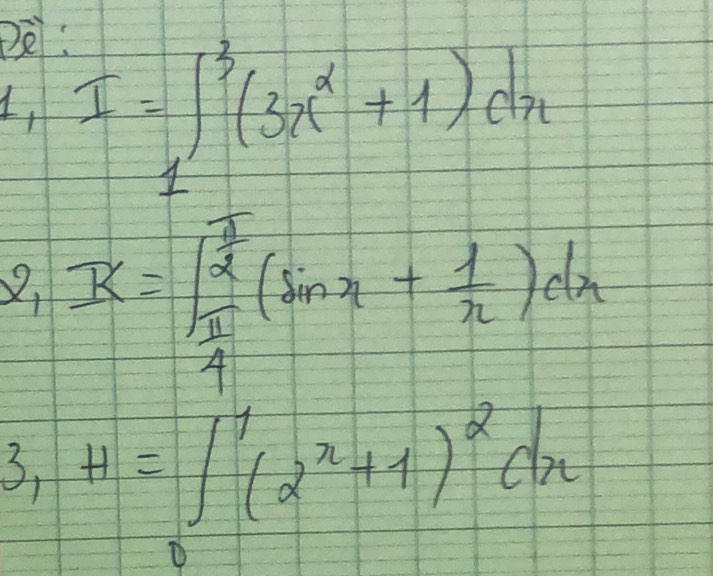 Đề:
1, I = ∫₁³ (3x² + 1) dx
2, K = ∫_{π/4}^{π/2} (sin x + 1/x) dx
3, H = ∫₀¹ (2ˣ + 1)² dx